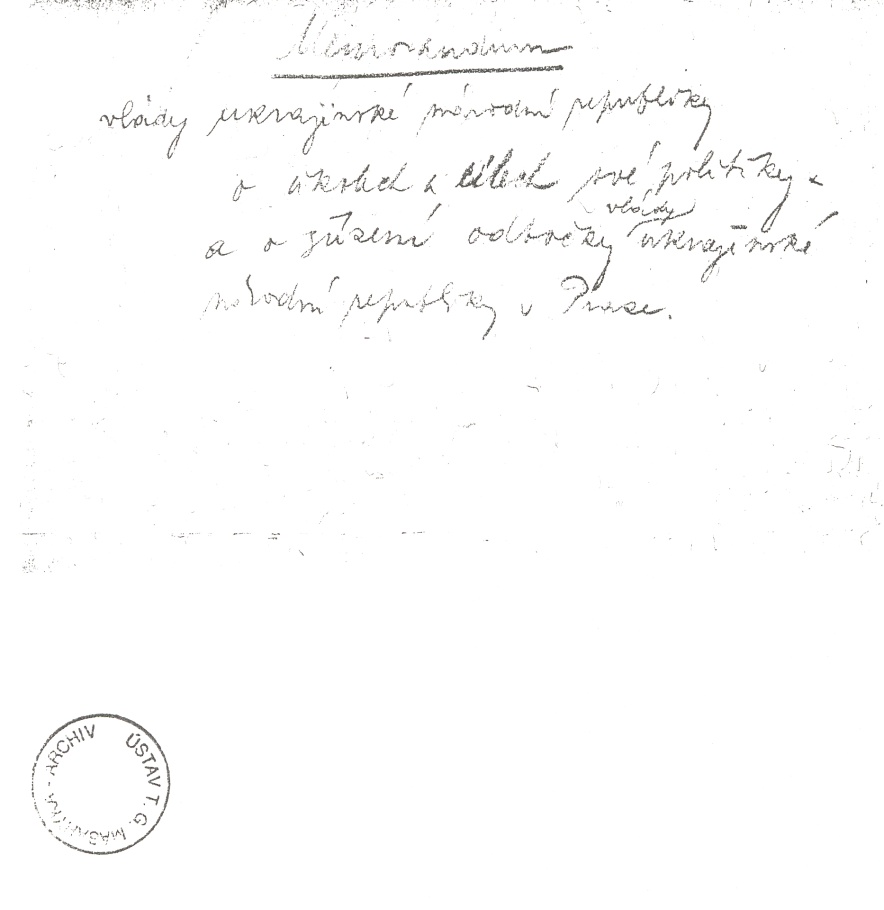 Memorandum
vlády ukrajinské národní republiky
o úkolech a cílech své politiky
vlády
a o zřízení odbočky ukrajinské
národní republiky v Praze.
ÚSTAV T. G. MASARYKA - ARCHIV